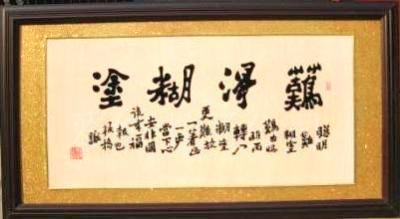 難淂糊塗
聰明
難
糊塗
難由聰
明而
轉入
糊塗
更難放
一著退
一步
當下心
安非圖
後来福
報也
板橋
識